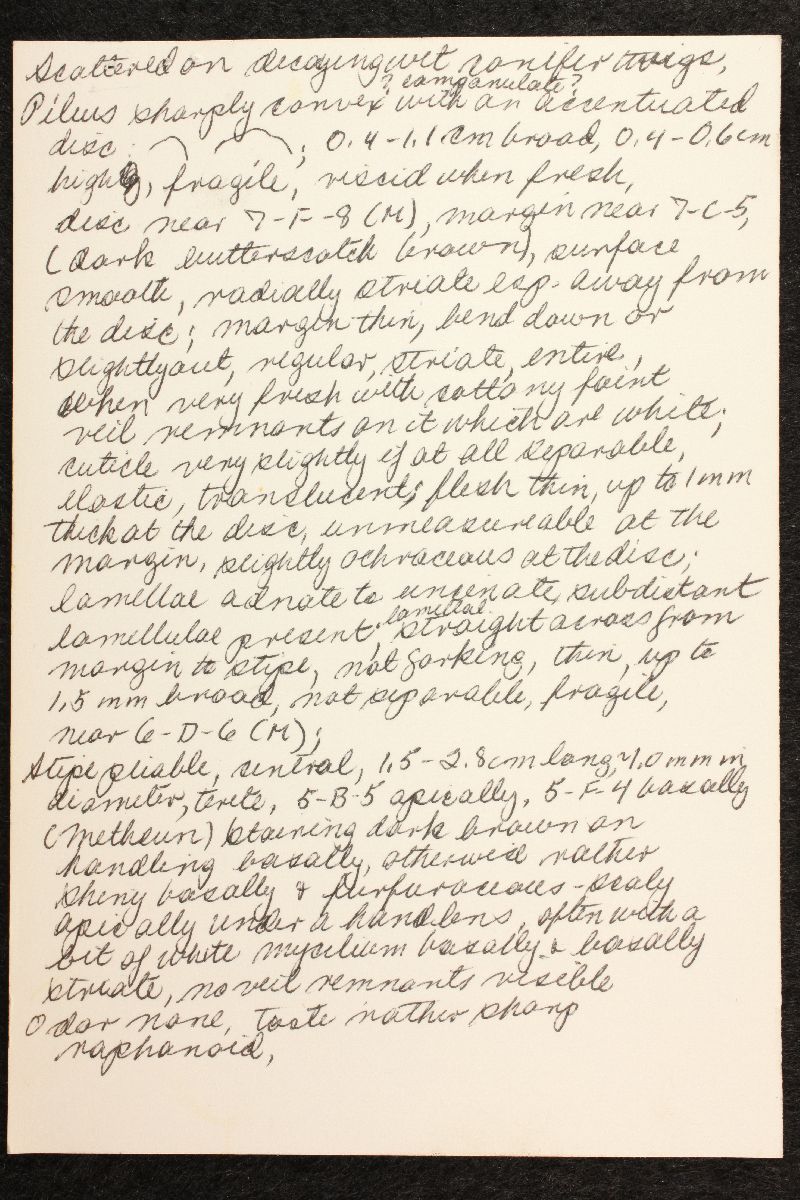 Scattered on decaying wet conifer twigs,
? campanulate?
Pileus sharply convex with an accentuated
disc: ; 0.4-1.1 cm broad, 0.4-0.6 cm
high, fragile, viscid when fresh,
disc near 7-F-8 (M), margin near 7-C-5,
(dark butterscotch brown), surface
smooth, radially striate esp. away from
the disc; margin thin, bend down or
slightly out, regular, striate, entire,
when very fresh with cottony faint
veil remnants on it which are white;
cuticle very slightly if at all separable,
elastic, translucent; flesh thin, up to 1 mm
thick at the disc, unmeasureable at the
margin, slightly ochraceous at the disc;
lamellae adnate to uncinate, subdistant
lamellulae present, lamellae straight across from
margin to stipe, not forking, thin, up to
1.5 mm broad, not separable, fragile,
near 6-D-6 (M);
Stipe pliable, central, 1.5-2.8 cm long, ~1.0 mm in
diameter, terete, 5-B-5 apically, 5-F-4 basally
(Methuen) staining dark brown on
handling basally, otherwise rather
shiny basally & furfuraceous-scaly
apically under a hand lens, often with a
bit of white mycelium basally & basally
striate, no veil remnants visible
Odor none, taste rather sharp
raphanoid,